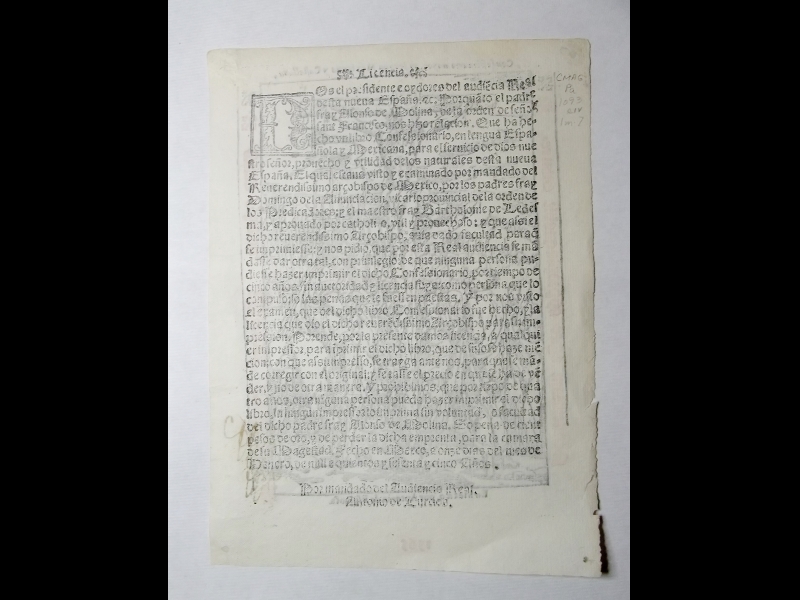 Licencia.
Os el presidente e oydores del audiẽcia Real
desta nueua España. &c. Porquãto el padre
fray Alonso de Molina, de la orden de señor
sant Francisco, nos hizo relacion. Que ha he-
cho vn libro Confessionario, en lengua Espa-
ñola y Mexicana, para el seruicio de dios nue
stro señor, prouecho y vtilidad delos naturales desta nueua
España. El qual estaua visto y examinado por mandado del
Reuerendissimo arçobispo de Mexico, por los padres fray
Domingo dela Anunciacion, vicario prouincial dela orden de
los Predicadores: y el maestro fray Bartholome de Ledes
ma, y aprouado por catholico, vtil y prouechoso: y que assi el
dicho reuerendissimo Arçobispo, auia dado facultad paraq̃
se imprimiesse: y nos pidio, que por esta Real audiencia se mã
dasse dar otra tal, con priuilegio, de que ninguna persona pu-
diesse hazer imprimir el dicho Confessionario, por tiempo de
cinco años, sin su
licencia suya: como persona que lo
compuso: so las penas que le fuessen puestas. Y por nos visto
el examen, que del dicho libro Confessionario fue hecho, y la
licencia que dio el dicho reuerendissimo Arçobispo para su im-
pression. Porende, por la presente damos licencia, a qualqui
er impressor, para iprimir el dicho libro, que de suso se haze mẽ
cion: con que assi impresso, se trayga ante nos, para que se mã
de corregir con el original, y se tasse el precio en que se ha de vẽ
der, y no de otra manera. Y prohibimos, que por tiempo de qua
tro años, otra ninguna persona pueda hazer imprimir el dicho
libro, ni ningun impressor lo imprima sin voluntad, o facultad
del dicho padre fray Alonso de Molina. So pena de cient
pesos de oro, y de perder la dicha emprenta, para la camara
de su Magestad. Fecho en Mexico, a onze dias del mes de
Henero, de mill e quinientos y sesenta y cinco Años.
Por mandado del Audiencia Real.
Antonio de Turcios.